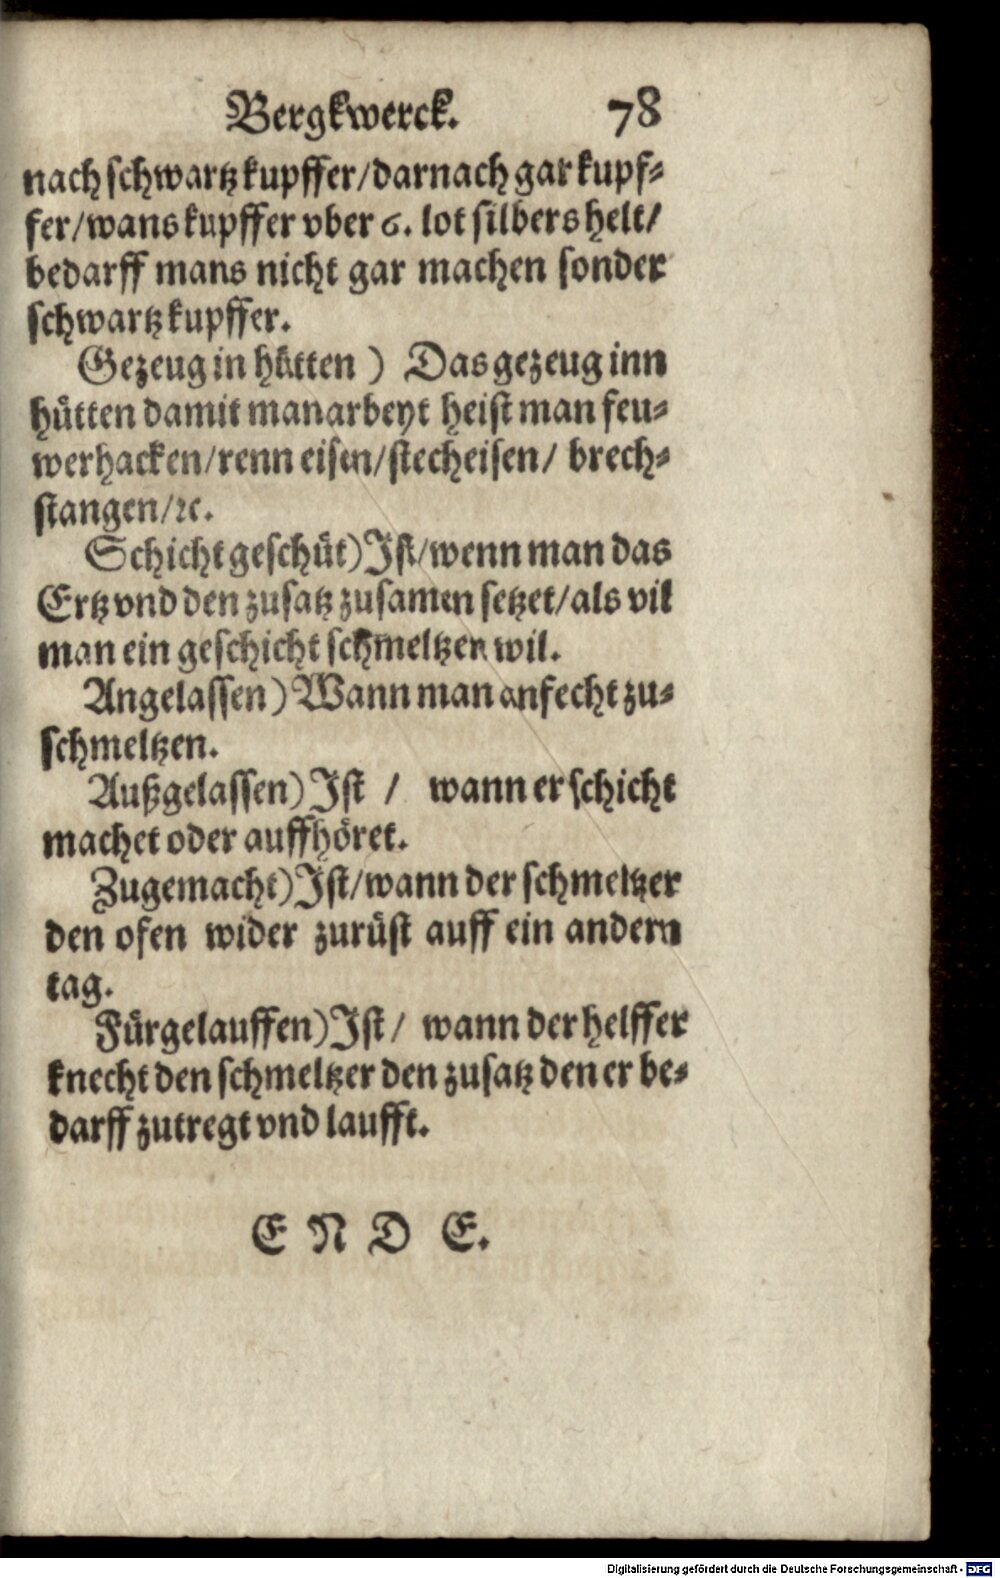 Bergkwerck. 78
nach schwartz kupffer/darnach gar kupf-
fer/wans kupffer vber 6. lot silbers helt/
bedarff mans nicht gar machen sonder
schwartz kupffer.
Gezeug in hütten ) Das gezeug inn
hütten damit man arbeyt heist man feu-
werhacken/renn eisen/stecheisen/ brech-
stangen/ꝛc.
Schicht geschüt) Ist/wenn man das
Ertz vnd den zusatz zusamen setzet/als vil
man ein geschicht schmeltzen wil.
Angelassen) Wann man anfecht zu-
schmeltzen.
Außgelassen) Ist / wann er schicht
machet oder auffhöret.
Zugemacht) Ist/wann der schmeltzer
den ofen wider zurüst auff ein andern
tag.
Fürgelauffen) Ist/ wann der helffer
knecht den schmeltzer den zusatz den er be-
darff zutregt vnd laufft.
E N D E.
Digitalisierung gefördert durch die Deutsche Forschungsgemeinschaft - DFG